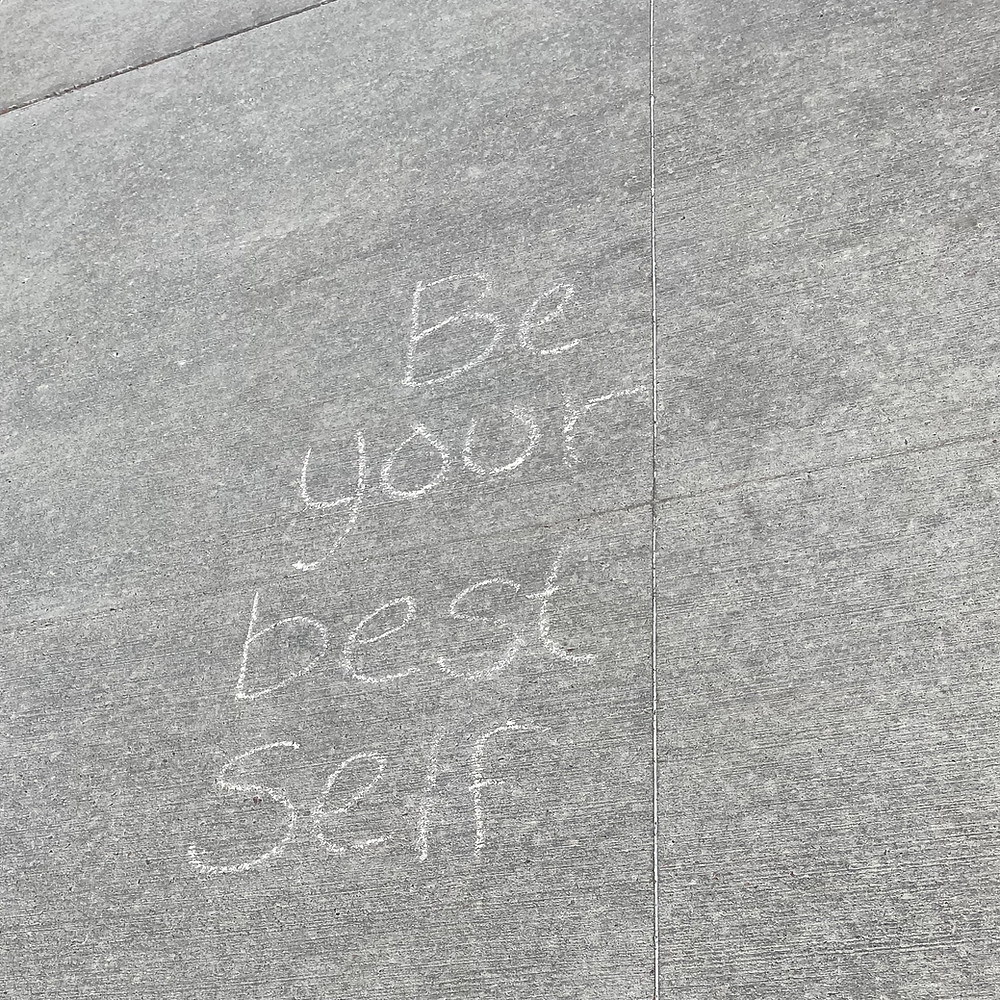 Be
your
best
self